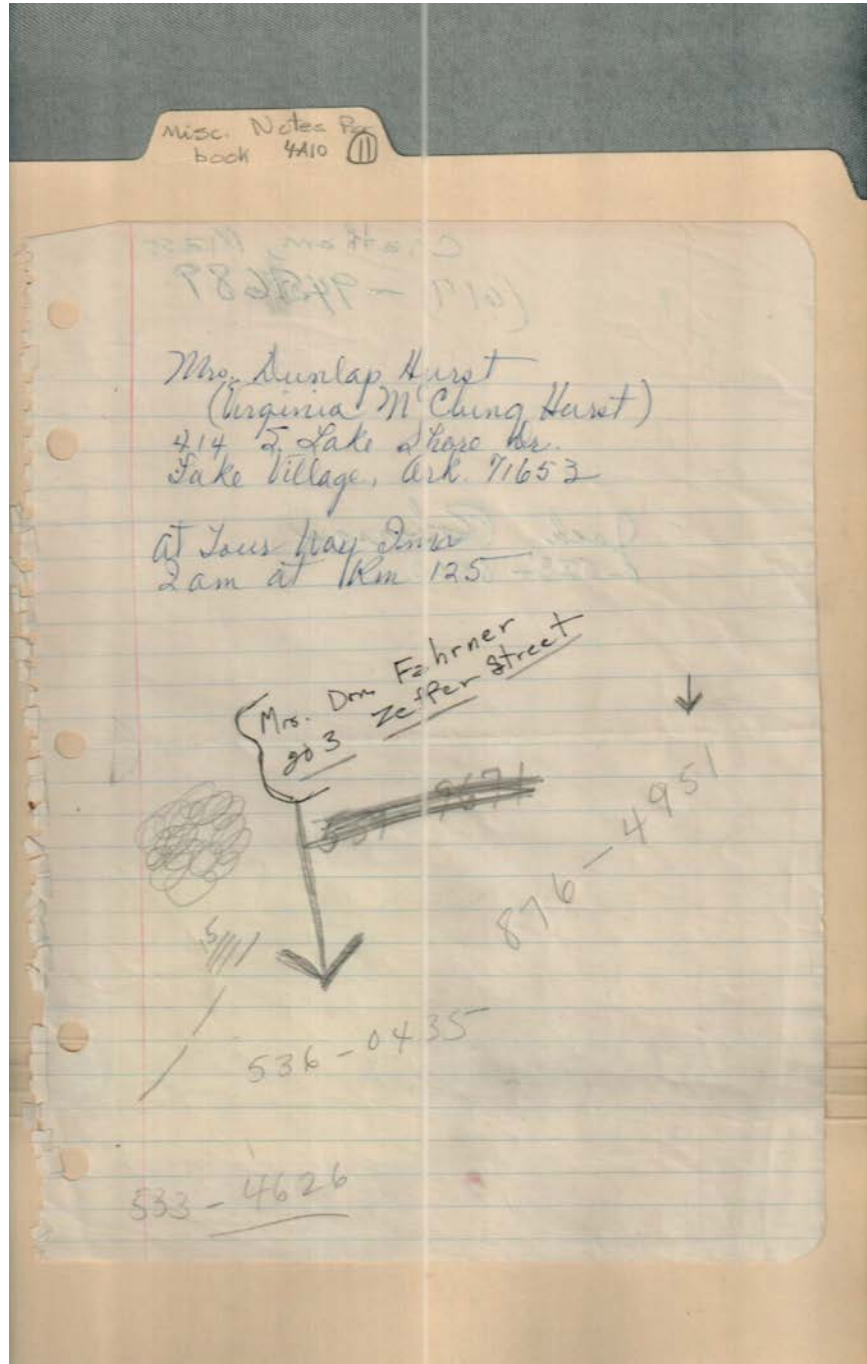 Misc. Notes
book 4A10 11
Mrs. Dunlap Hurst
(Virginia McClung Hurst)
414 S. Lake Shore Dr.
Lake Village, Ark. 71653
at Tour Way Inn
2 am at Rm 125
Mrs. Don Fahrner
903 Zeffer Street
876-4951
536-0435
533-4626